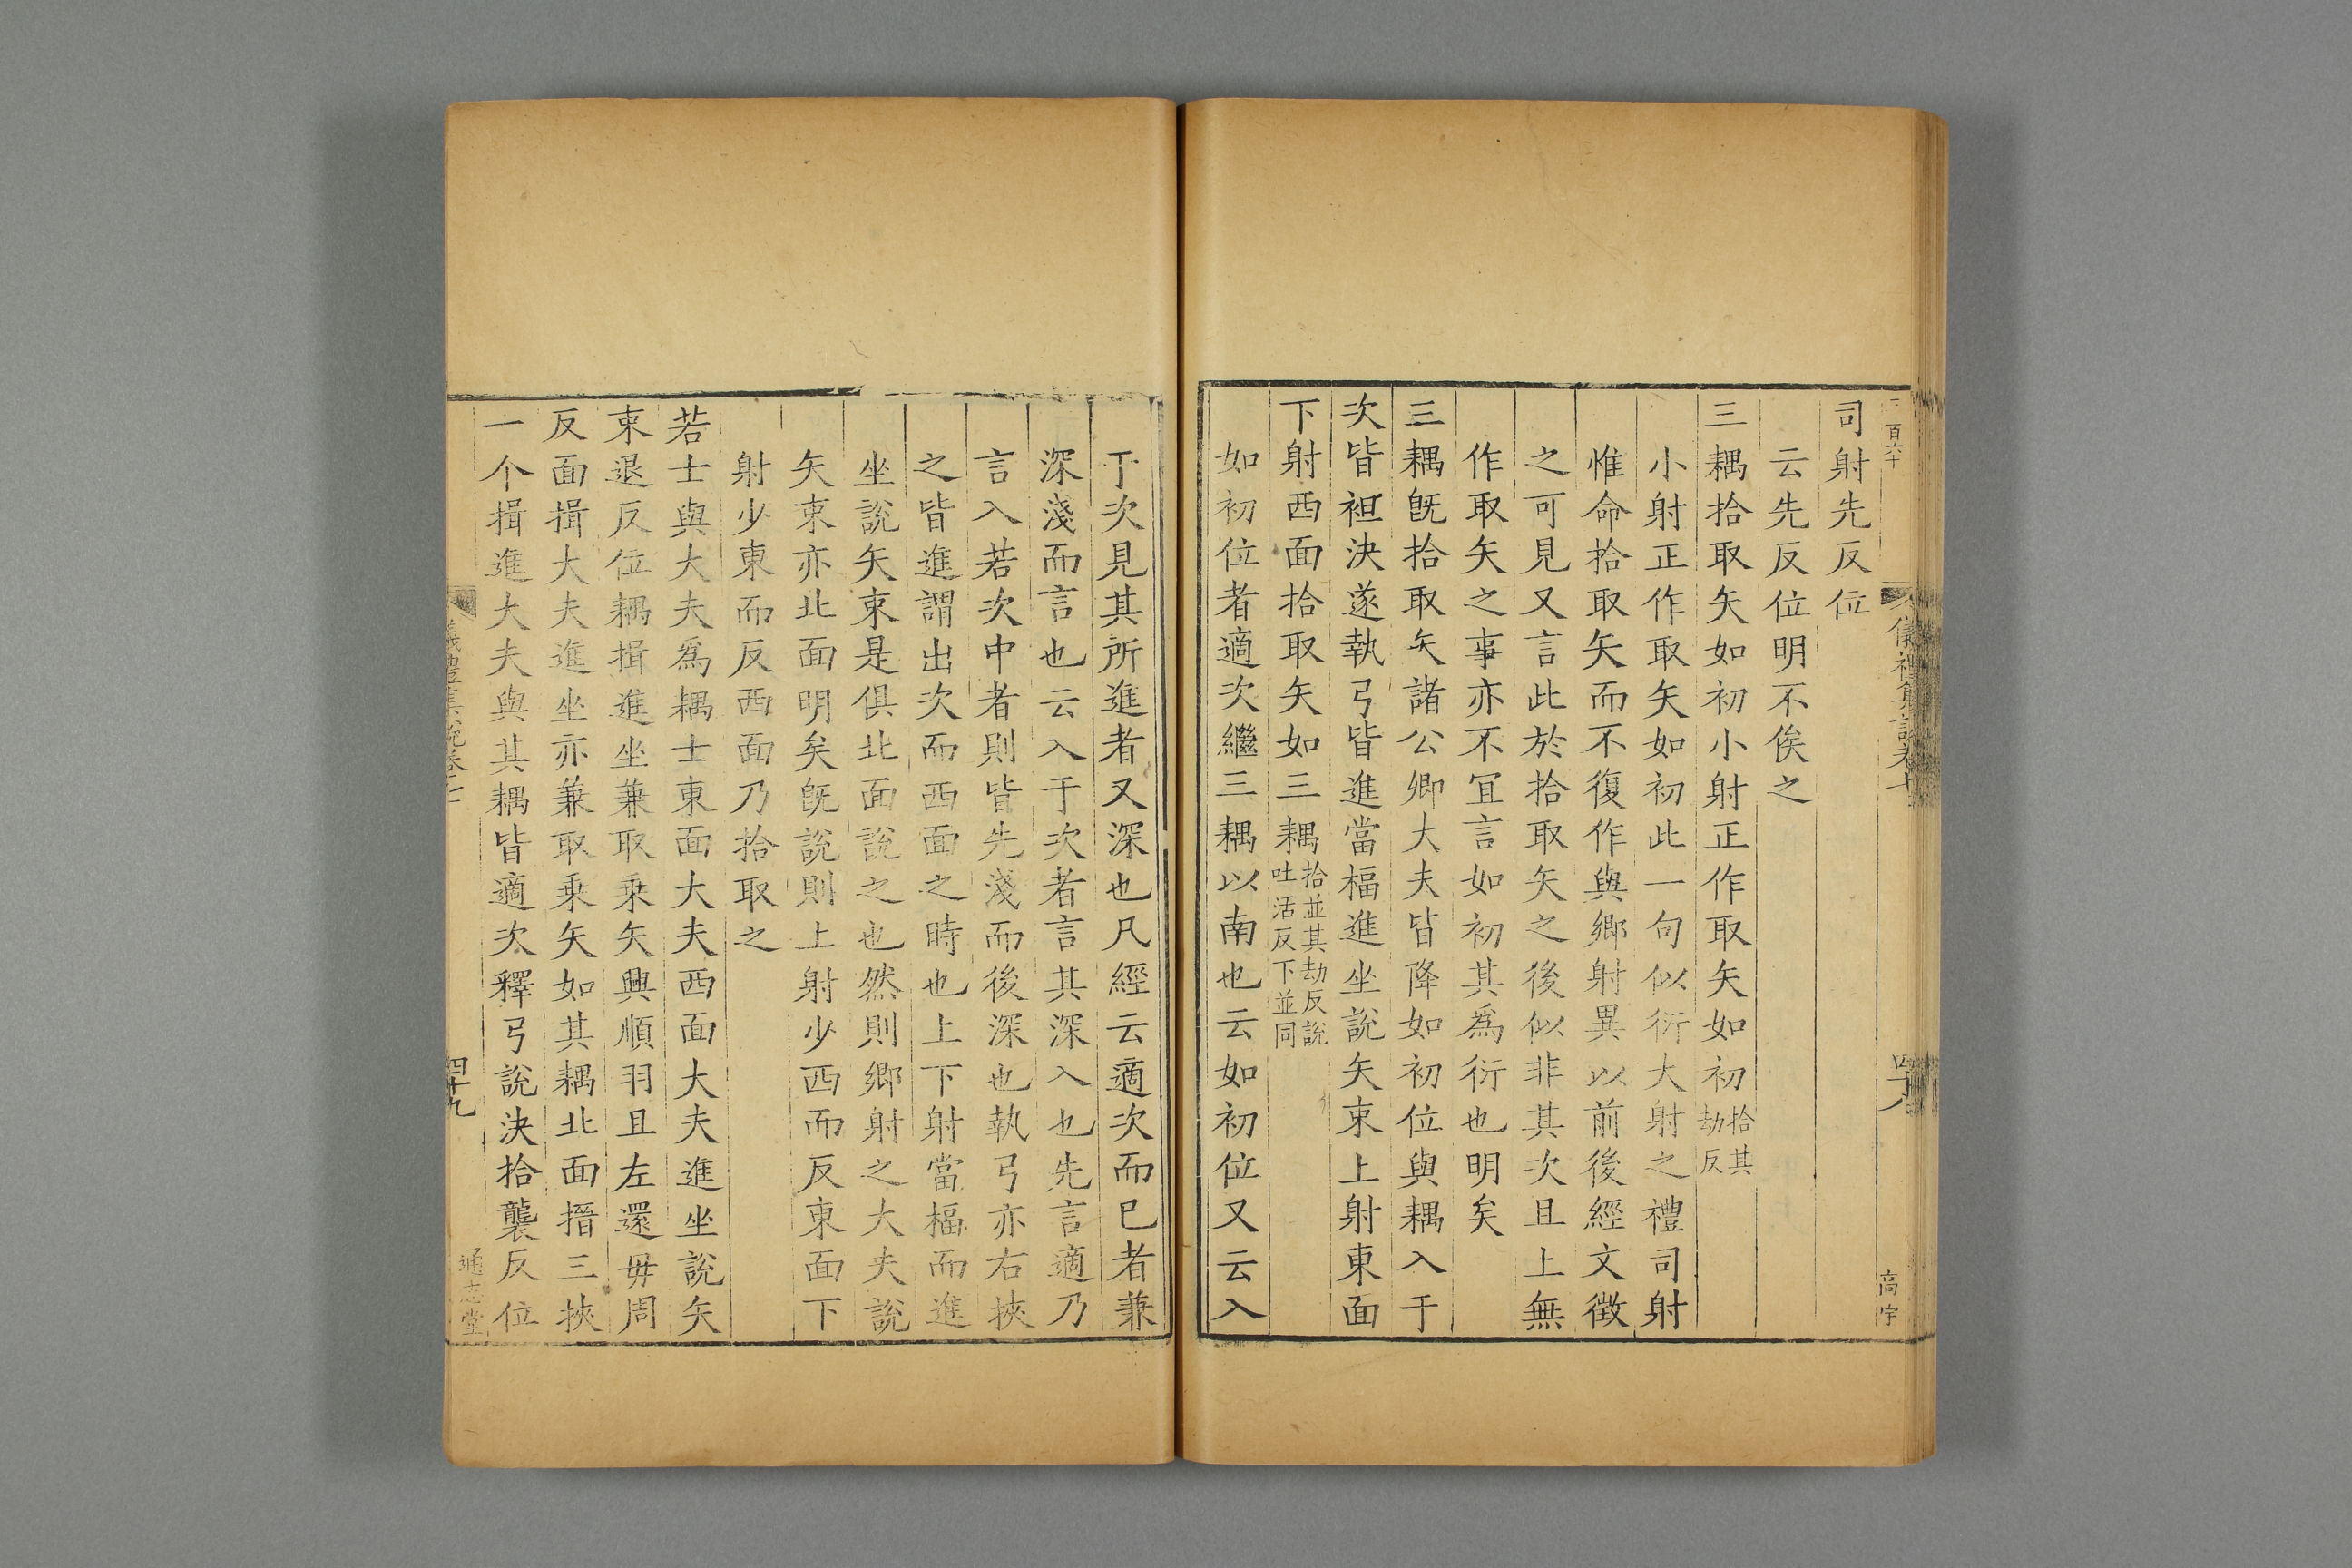 二百六十
儀禮集說卷七
四十八
高宇
司射先反位
云先反位明不俟之
三耦拾取矢如初小射正作取矢如初拾其劫反
小射正作取矢如初此一句似衍大射之禮司射
惟命拾取矢而不復作與鄉射異以前後經文徵
之可見又言此於拾取矢之後似非其次且上無
作取矢之事亦不冝言如初其為衍也明矣
三耦旣拾取矢諸公卿大夫皆降如初位與耦入于
次皆袒決遂執弓皆進當楅進坐說矢束上射東面
下射西面拾取矢如三耦拾並其劫反說吐活反下並同
如初位者適次繼三耦以南也云如初位又云入
于次見其所進者又深也凡經云適次而已者兼
深淺而言也云入于次者言其深入也先言適乃
言入若次中者則皆先淺而後深也執弓亦右挾
之皆進謂出次而西面之時也上下射當楅而進
坐說矢束是俱北面說之也然則鄉射之大夫說
矢束亦北面明矣旣說則上射少西而反東面下
射少東而反西面乃拾取之
若士與大夫為耦士東面大夫西面大夫進坐說矢
束退反位耦揖進坐兼取乘矢興順羽且左還毋周
反面揖大夫進坐亦兼取乘矢如其耦北面搢三挾
一个揖進大夫與其耦皆適次釋弓說決拾襲反位
儀禮集說卷七
四十九
通志堂